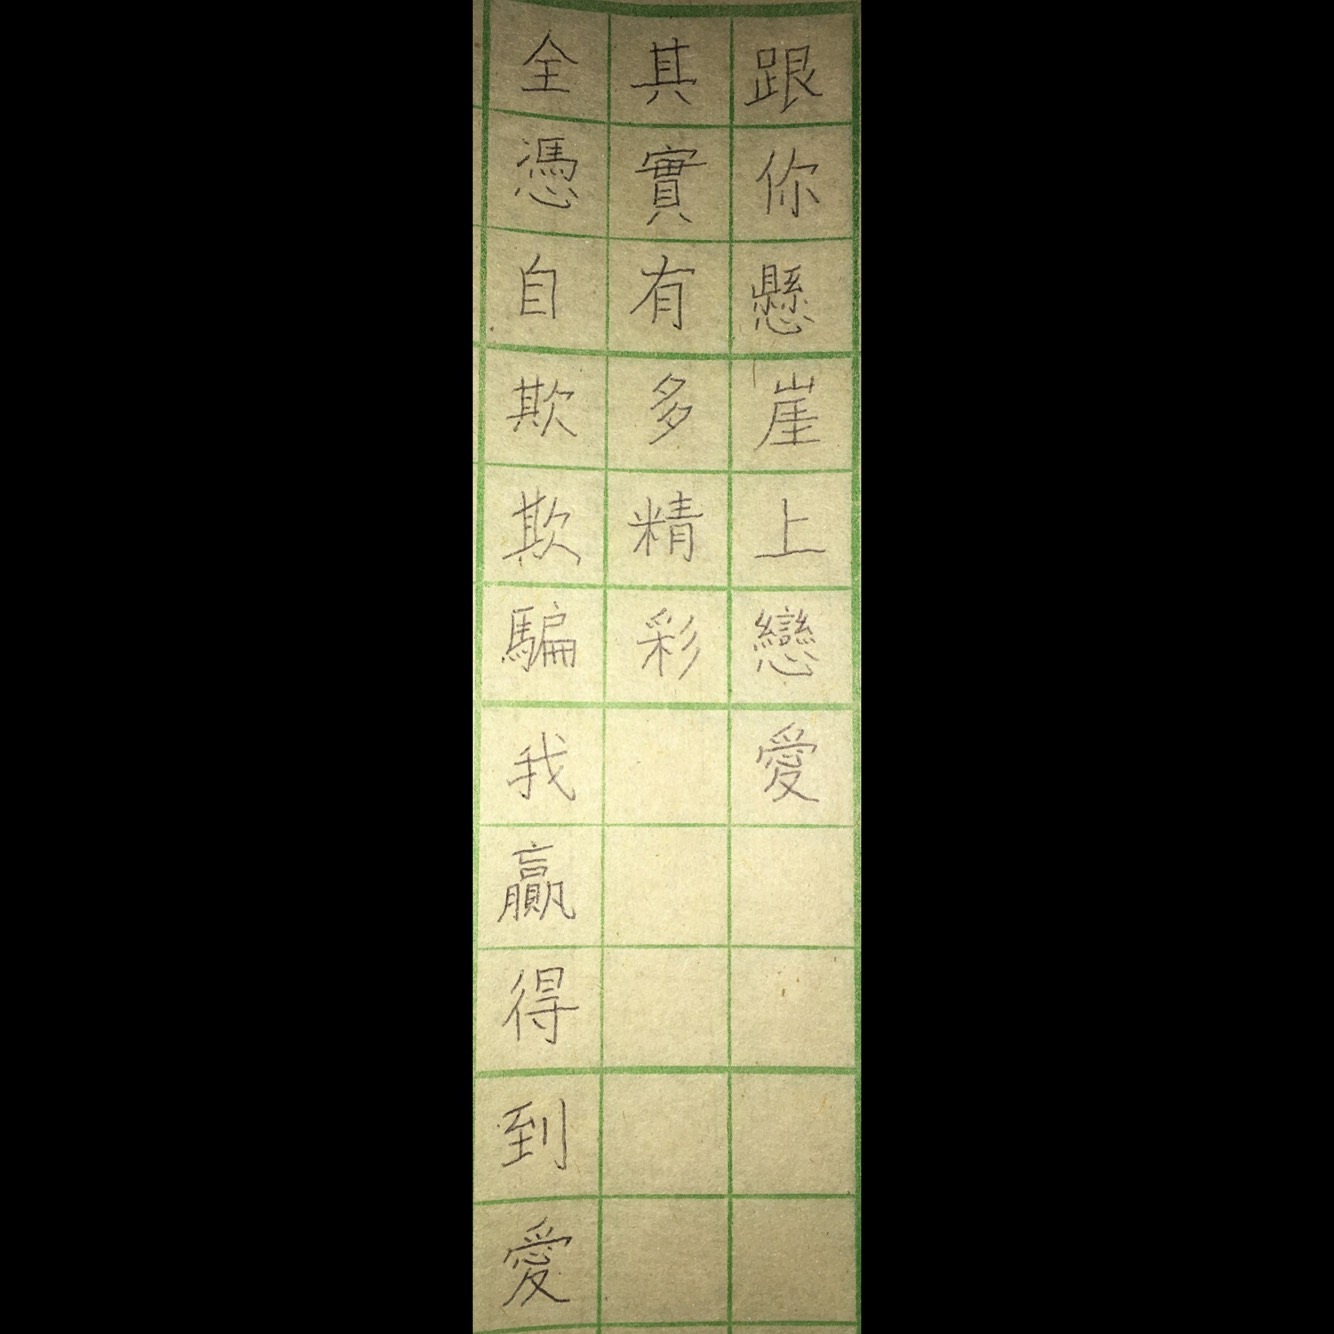 跟你懸崖上戀愛
其實有多精彩
全憑自欺欺騙我贏得到愛